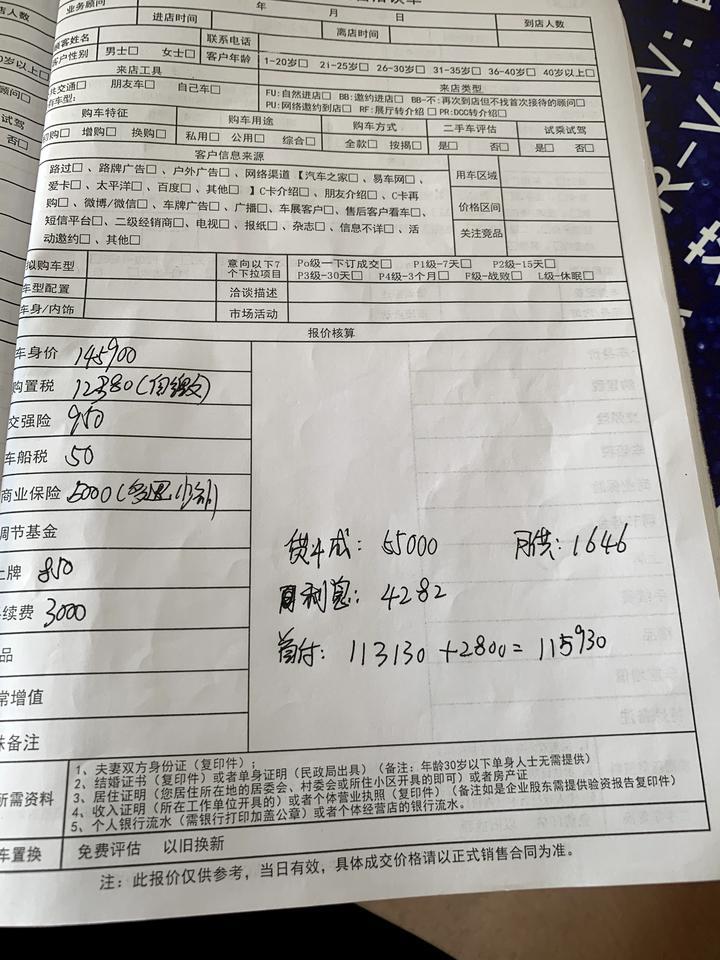 业务顾问 年 月 日
进店时间 离店时间 到店人数
顾客姓名 联系电话
客户性别 男士□ 女士□ 客户年龄 1-20岁□ 21-25岁□ 26-30岁□ 31-35岁□ 36-40岁□ 40岁以上□
来店工具 来店类型
共交通□ 朋友车□ 自己车□ FU:自然进店□ BB:邀约进店□ BB-不:再次到店但不找首次接待的顾问□
有车型: PU:网络邀约到店□ RF:展厅转介绍□ PR:DCC转介绍□
购车特征 购车用途 购车方式 二手车评估 试乘试驾
购□ 增购□ 换购□ 私用□ 公用□ 综合□ 全款□ 按揭□ 是□ 否□ 是□ 否□
客户信息来源
路过□、路牌广告□、户外广告□、网络渠道【汽车之家□、易车网□、 用车区域
爱卡□、太平洋□、百度□、其他□】C卡介绍□、朋友介绍□、C卡再
购□、微博/微信□、车牌广告□、广播□、车展客户□、售后客户看车□、 价格区间
短信平台□、二级经销商□、电视□、报纸□、杂志□、信息不详□、活 关注竞品
动邀约□、其他□
拟购车型 意向以下7个下拉项目 Po级一下订成交□ P1级-7天□ P2级-15天□
P3级-30天□ P4级-3个月□ F级-战败□ L级-休眠□
车型配置 洽谈描述
车身/内饰 市场活动
报价核算
车身价 145900
购置税 12380(自缴)
交强险 950
车船税 50
商业保险 5000(多退少补)
调节基金
上牌 850
续费 3000
品
常增值
殊备注
贷4成: 65000 月供: 1646
利息: 4282
首付: 113130 +2800= 115930
所需资料
1、夫妻双方身份证(复印件);
2、结婚证书(复印件)或者单身证明(民政局出具)(备注:年龄30岁以下单身人士无需提供)
3、居住证明(您居住所在地的居委会、村委会或所住小区开具的即可)或者房产证
4、收入证明(所在工作单位开具的)或者个体营业执照(复印件)(备注如是企业股东需提供验资报告复印件)
5、个人银行流水(需银行打印加盖公章)或者个体经营店的银行流水。
车置换 免费评估 以旧换新
注:此报价仅供参考,当日有效,具体成交价格请以正式销售合同为准。